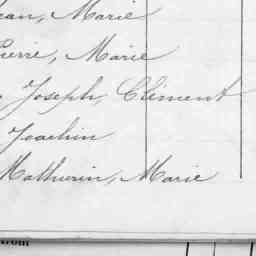 Marie
Pierre, Marie
Joseph, Clément
Joachin
Mathurin, Marie